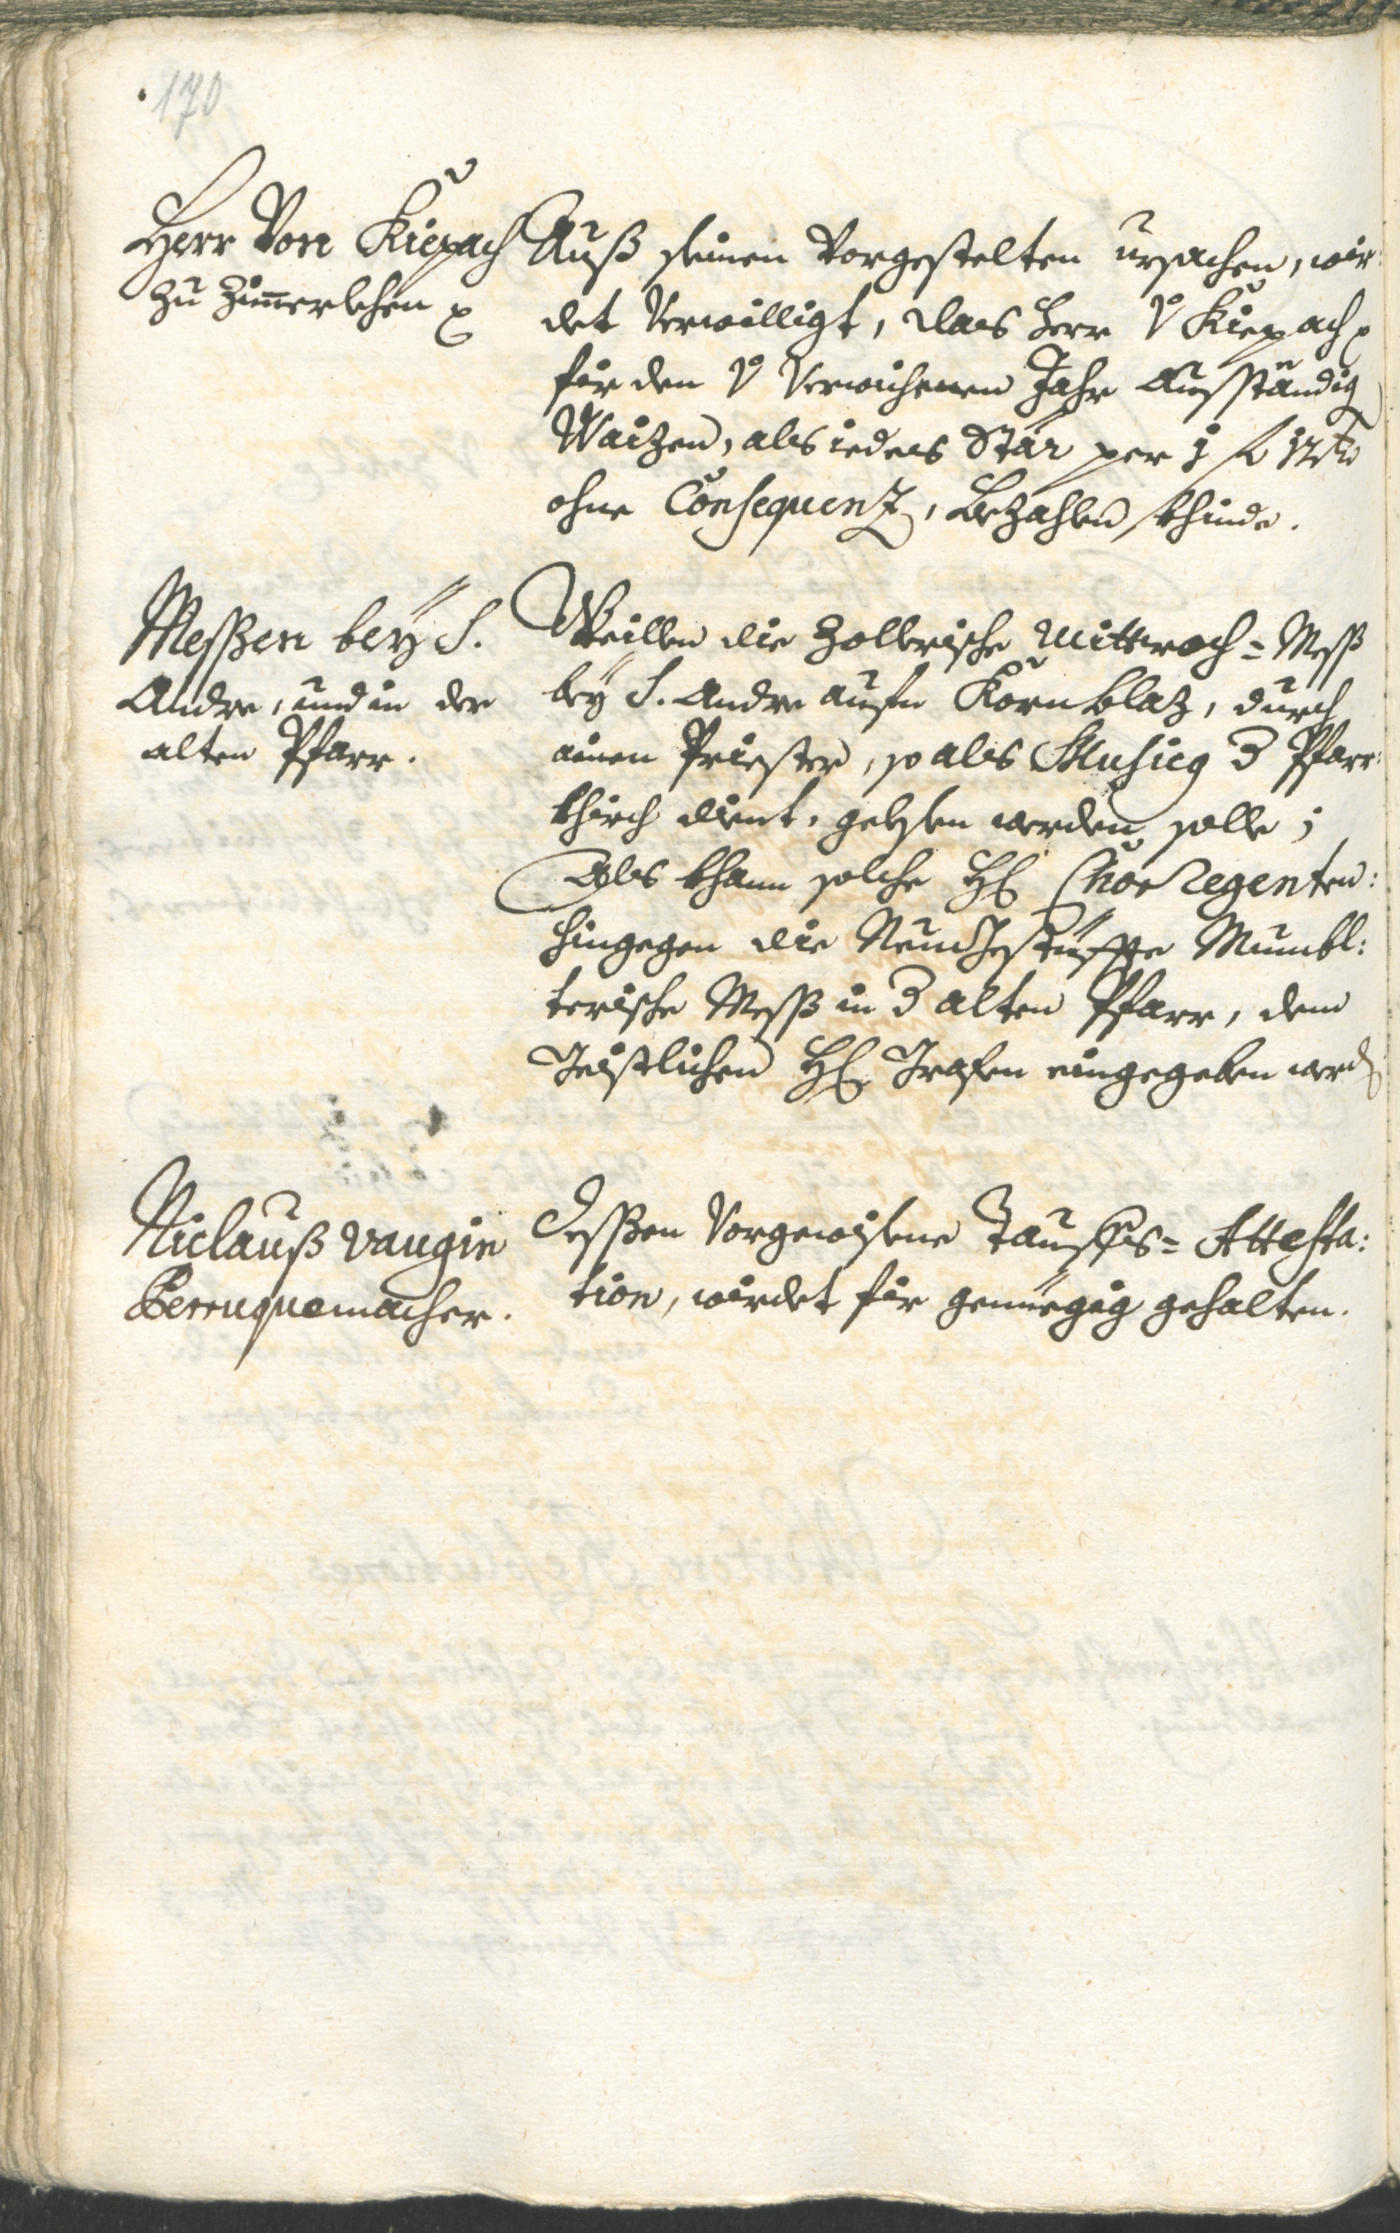 170
Herr Von Kiepach
zu Zimerlehen
Auß seinen Vorgestelten ursachen, wir:
det Verwilligt, das Herr V Kiepach
für den V Verwichenen Jahr Ausständig
Waizen, als iedes Stär per 1 f 12 kr
ohne Consequenz, Bezahlen khinde.
Messen beÿ S.
Andre, und in der
alten Pfarr.
Weillen die Zollerische Mittwoch= Mess
beÿ S. Andre aufm Kornblaz, durch
ainen Priester, so als Musicg d Pfarr:
khirch dient, gelesen werden solle;
Als khann solche H Chor Regenten:
hingegen die Neu Mumbl:
terische Mess in d alten Pfarr, dem
Geistlichen H Grafen eingegeben werd
Niclauß Vaugin
Perruquemacher.
Dessen Vorgewisene Tauffs= Attesta:
tion, wirdet für genuegig gehalten.